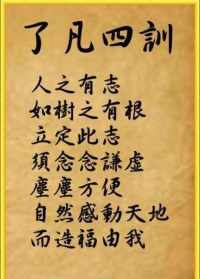 了凡四訓
人之有志
如樹之有根
立定此志
須念念謙虛
塵塵方便
自然感動天地
而造福由我